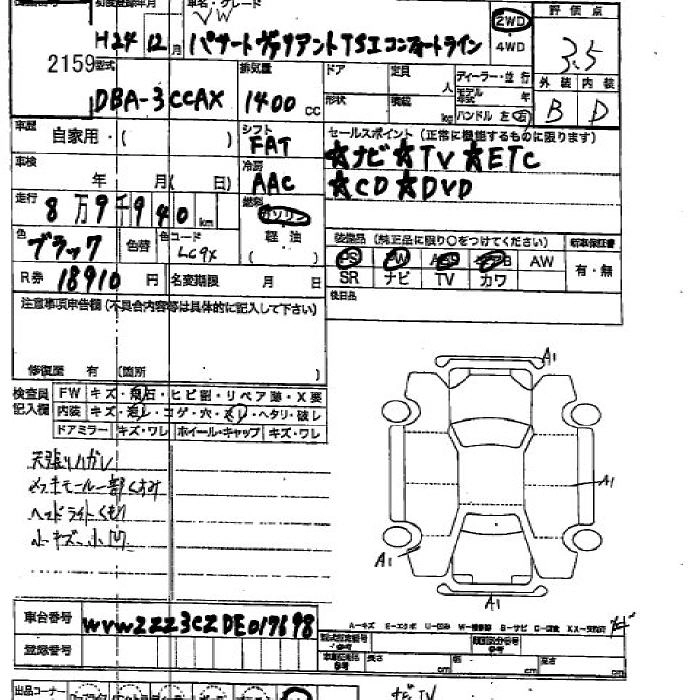 初度登録年月 車名・グレード
VW
H24 12月 パサートヴァリアントTSIコンフォートライン
2WD
4WD
評価点
3.5
2159
型式
DBA-3CCAX
排気量
1400 cc
ドア
定員 人
形状
積載 kg
ディーラー・並行
モデル年式 年
ハンドル 左 右
外装 内装
B D
車歴
自家用・( )
シフト
FAT
セールスポイント (正常に機能するものに限ります)
★ナビ★TV★ETC
★CD★DVD
車検
年 月( 日)
冷房
AAC
走行
8万9千940km
燃料
ガソリン
軽油
( )
色
ブラック
色替
色コード
LC9X
装備品 (純正品に限り○をつけてください)
新車保証書
PS PW AW
有・無
SR ナビ TV カワ
R券 18910円
名変期限 月 日
後日品
注意事項申告欄(不具合内容等は具体的に記入して下さい)
修復歴 有 (箇所 )
検査員
記入欄
FW キズ・飛石・ヒビ割・リペア跡・X要
内装 キズ・汚レ・コゲ・穴・スレ・ヘタリ・破レ
ドアミラー キズ・ワレ ホイール・キャップ キズ・ワレ
天張りハガレ
メッキモール一部くすみ
ヘッドライトくもり
小キズ・小凹
A1
A1
A1
A1
車台番号
WVWZZZ3CZDE017698
登録番号
A-キズ E-エクボ U-凹み W-補修跡 S-サビ C-腐食
型式指定番号
類別区分番号
長さ cm 幅 cm 高さ cm
出品コーナー
ナビ TV